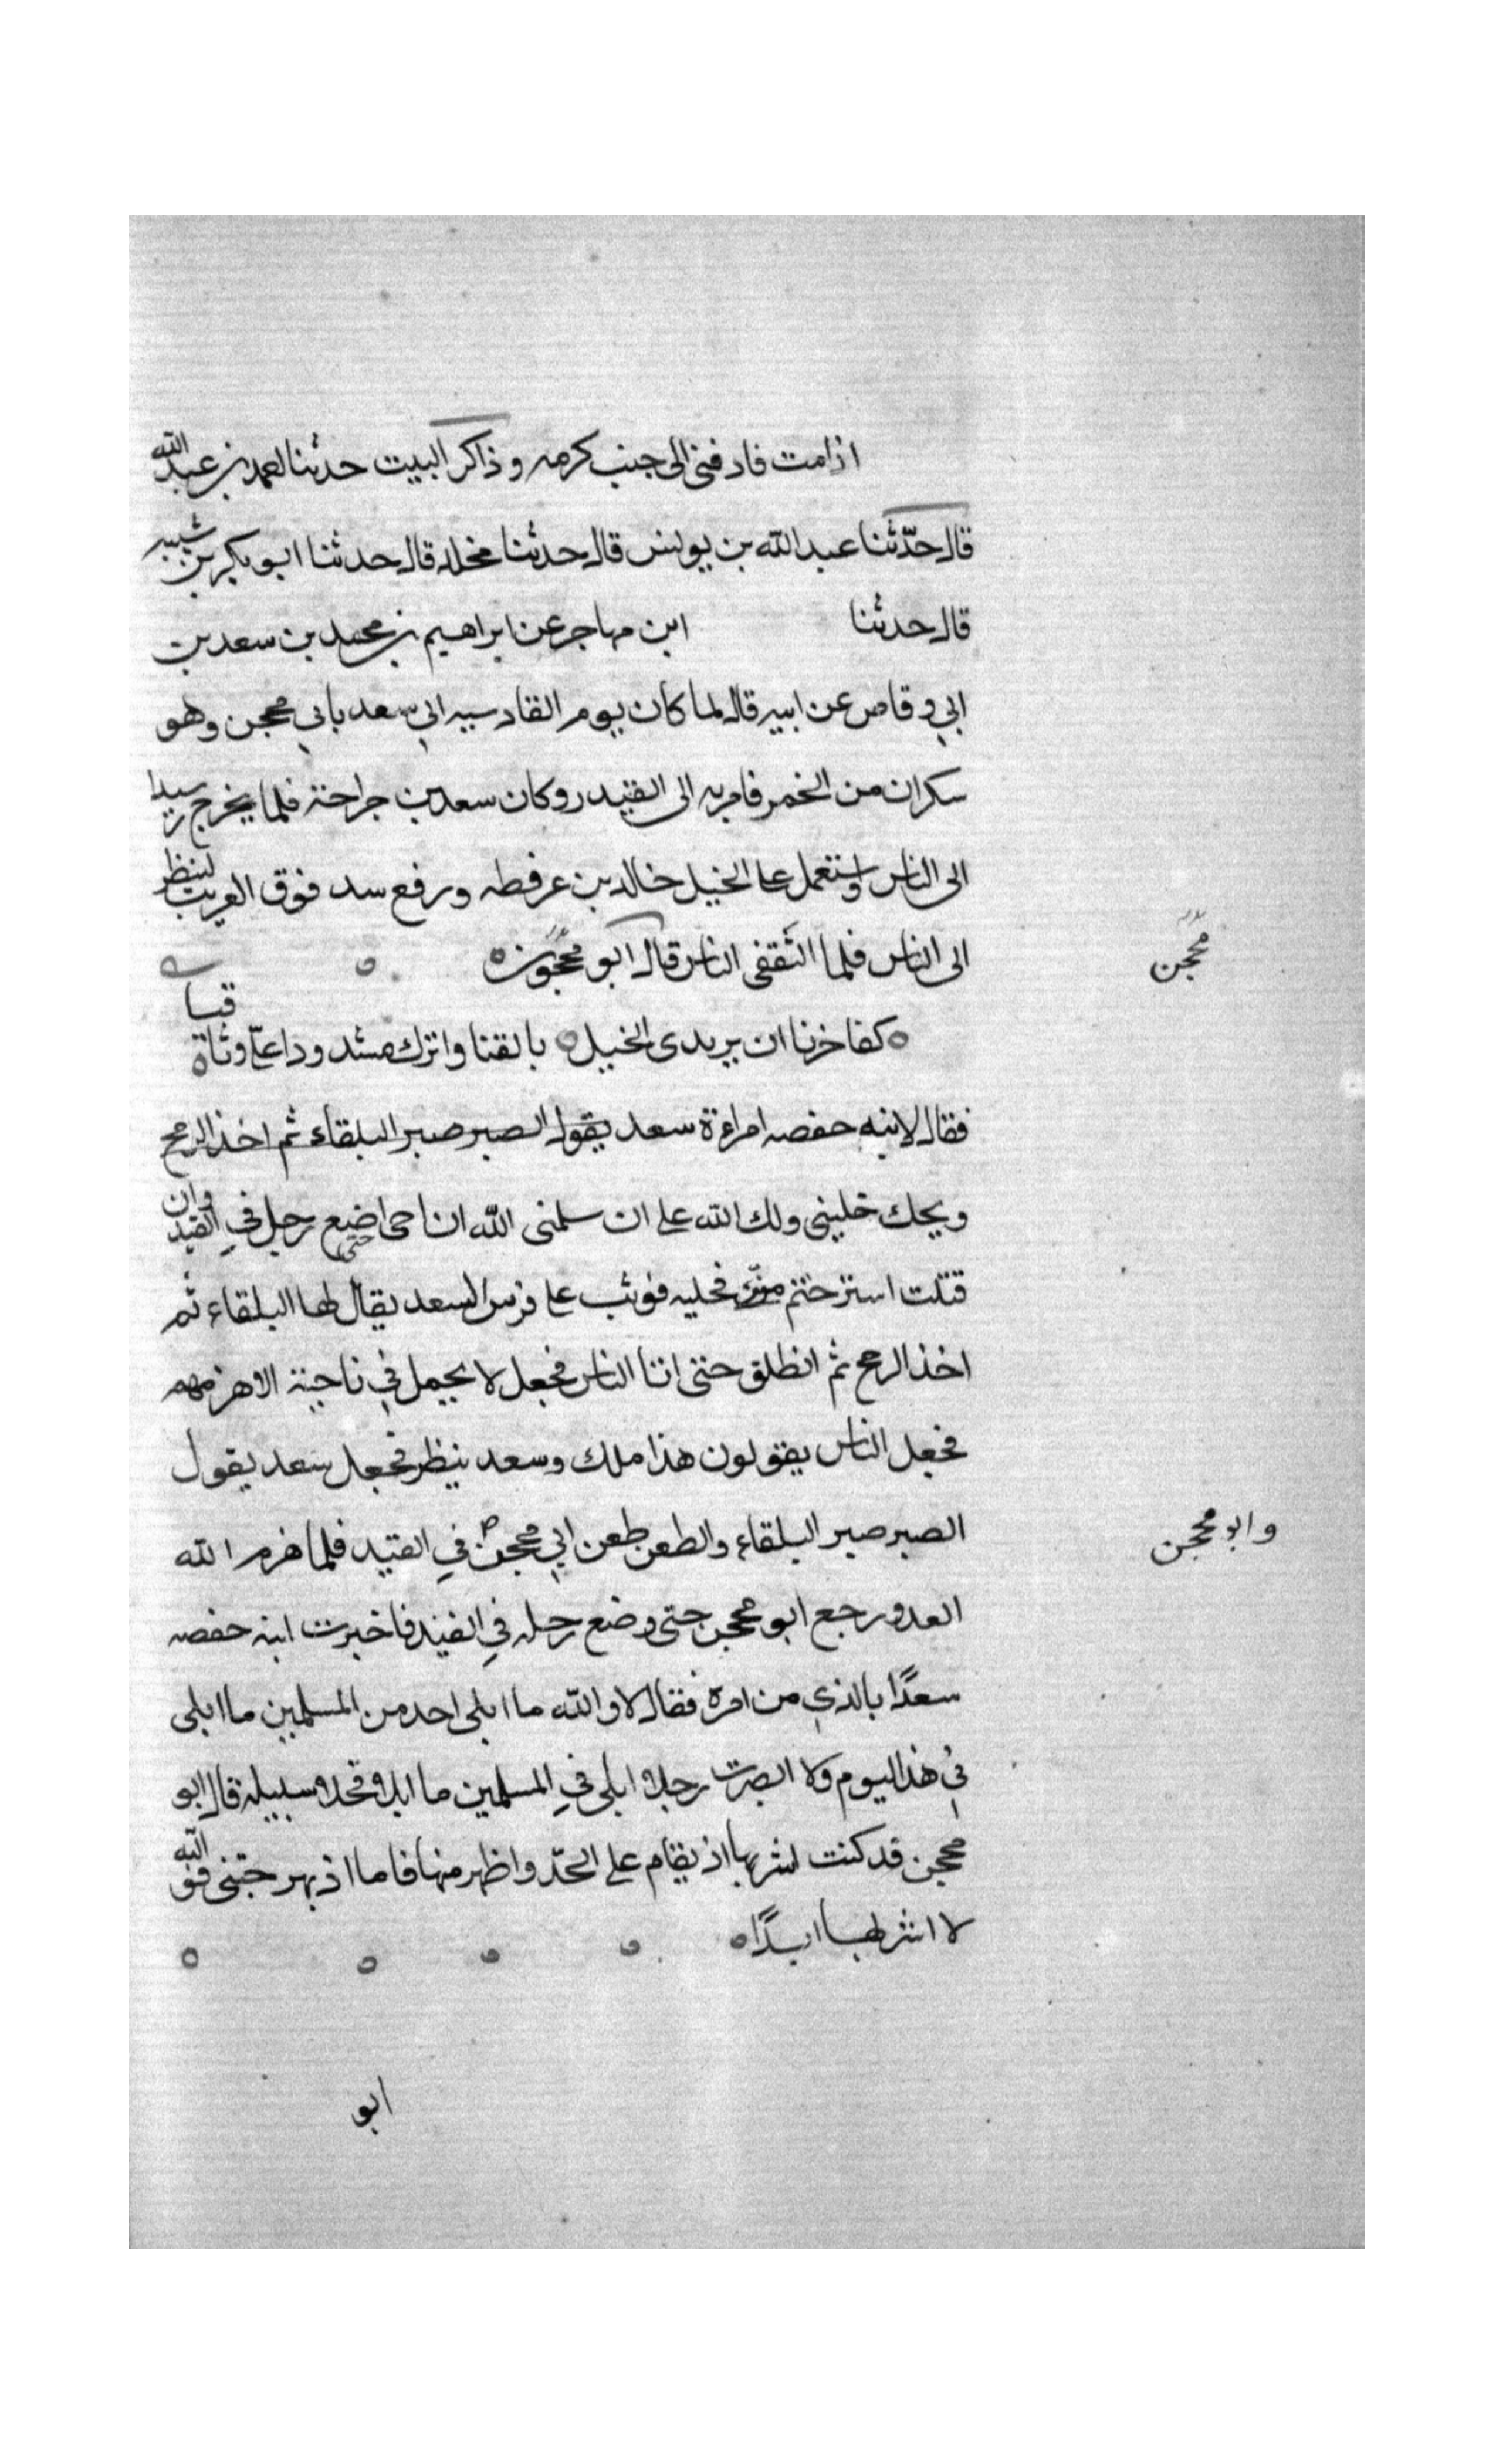 اذا مت فادفنى الى جنب كرمه وذاكر البيت حدثنا احمد بن عبد الله
قال حدّثنا عبد الله بن يونس قال حدثنا مخلد قال حدثنا ابو بكر بن شيبه
قال حدثنا ابن مهاجر عن ابراهيم بن محمد بن سعد بن
ابي وقاص عن ابيه قال لما كان يوم القادسيه اتي سعد بابي محجن وهو
سكران من الخمر فامر به الى القيد وكان سعد بن جراحة فلما يخرج
الى الناس واستعمل على الخيل خالد بن عرفطه ورفع سد فوق العريب لننظر
الى الناس فلما التقفى الناس قال ابو محجون
محجن
كفا خزنا ان يريدى الخيل بالقنا واترك مشدودا علىّ وثاقيا
فقال لابنه حفصه امراءة سعد يقول الصبر صبر البلقاء ثم اخذ الرمح
ويحك خلينى ولك الله على ان سلمنى الله ان احى حتى اضع رجل في القيد وان
قتلت استرحتم منّى فخليه فوثب على فرس لسعد يقال لها البلقاء ثم
اخذ الرمح ثم انطلق حتى اتا الناس فجعل لا يحمل في ناحية الا هزمهم
فجعل الناس يقولون هذا ملك وسعد ينظر فجعل سعد يقول
الصبر صبر البلقاء والطعن طعن ابي محجن في القيد فلما هزم الله
وابو محجن
العدو رجع ابو محجن حتى وضع رجله في القيد فاخبرت ابنه حفصه
سعدًا بالذي من امره فقال لا والله ما ابلى احد من المسلمين ما ابلى
في هذا اليوم ولا ابصرت رجلا ابلى في المسلمين ما ابلا فخلا سبيله قال ابو
محجن قد كنت اشربها اذ يقام على الحدّ واظهر منها فاما اذ بهرجتنى فو الله
لا اشربها ابدًا
ابو